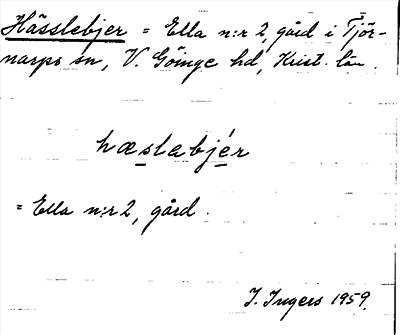 Hässlebjer = Ella n:r 2, gård i Tjör-
narps sn, V. Göinge hd, Krist. län.
hæslabjér
= Ella n:r 2, gård.
I. Ingers 1959.